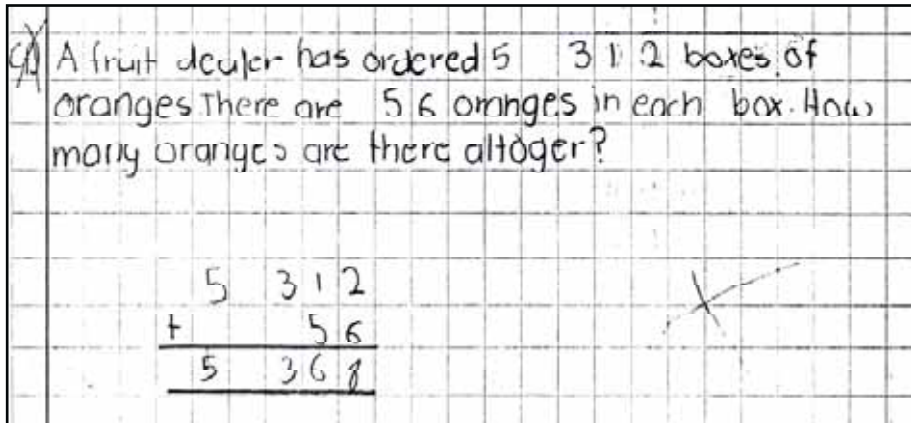 A fruit dealer has ordered 5 312 boxes of
oranges. There are 56 oranges in each box. How
many oranges are there altoger?
5 312
+ 56
5 368